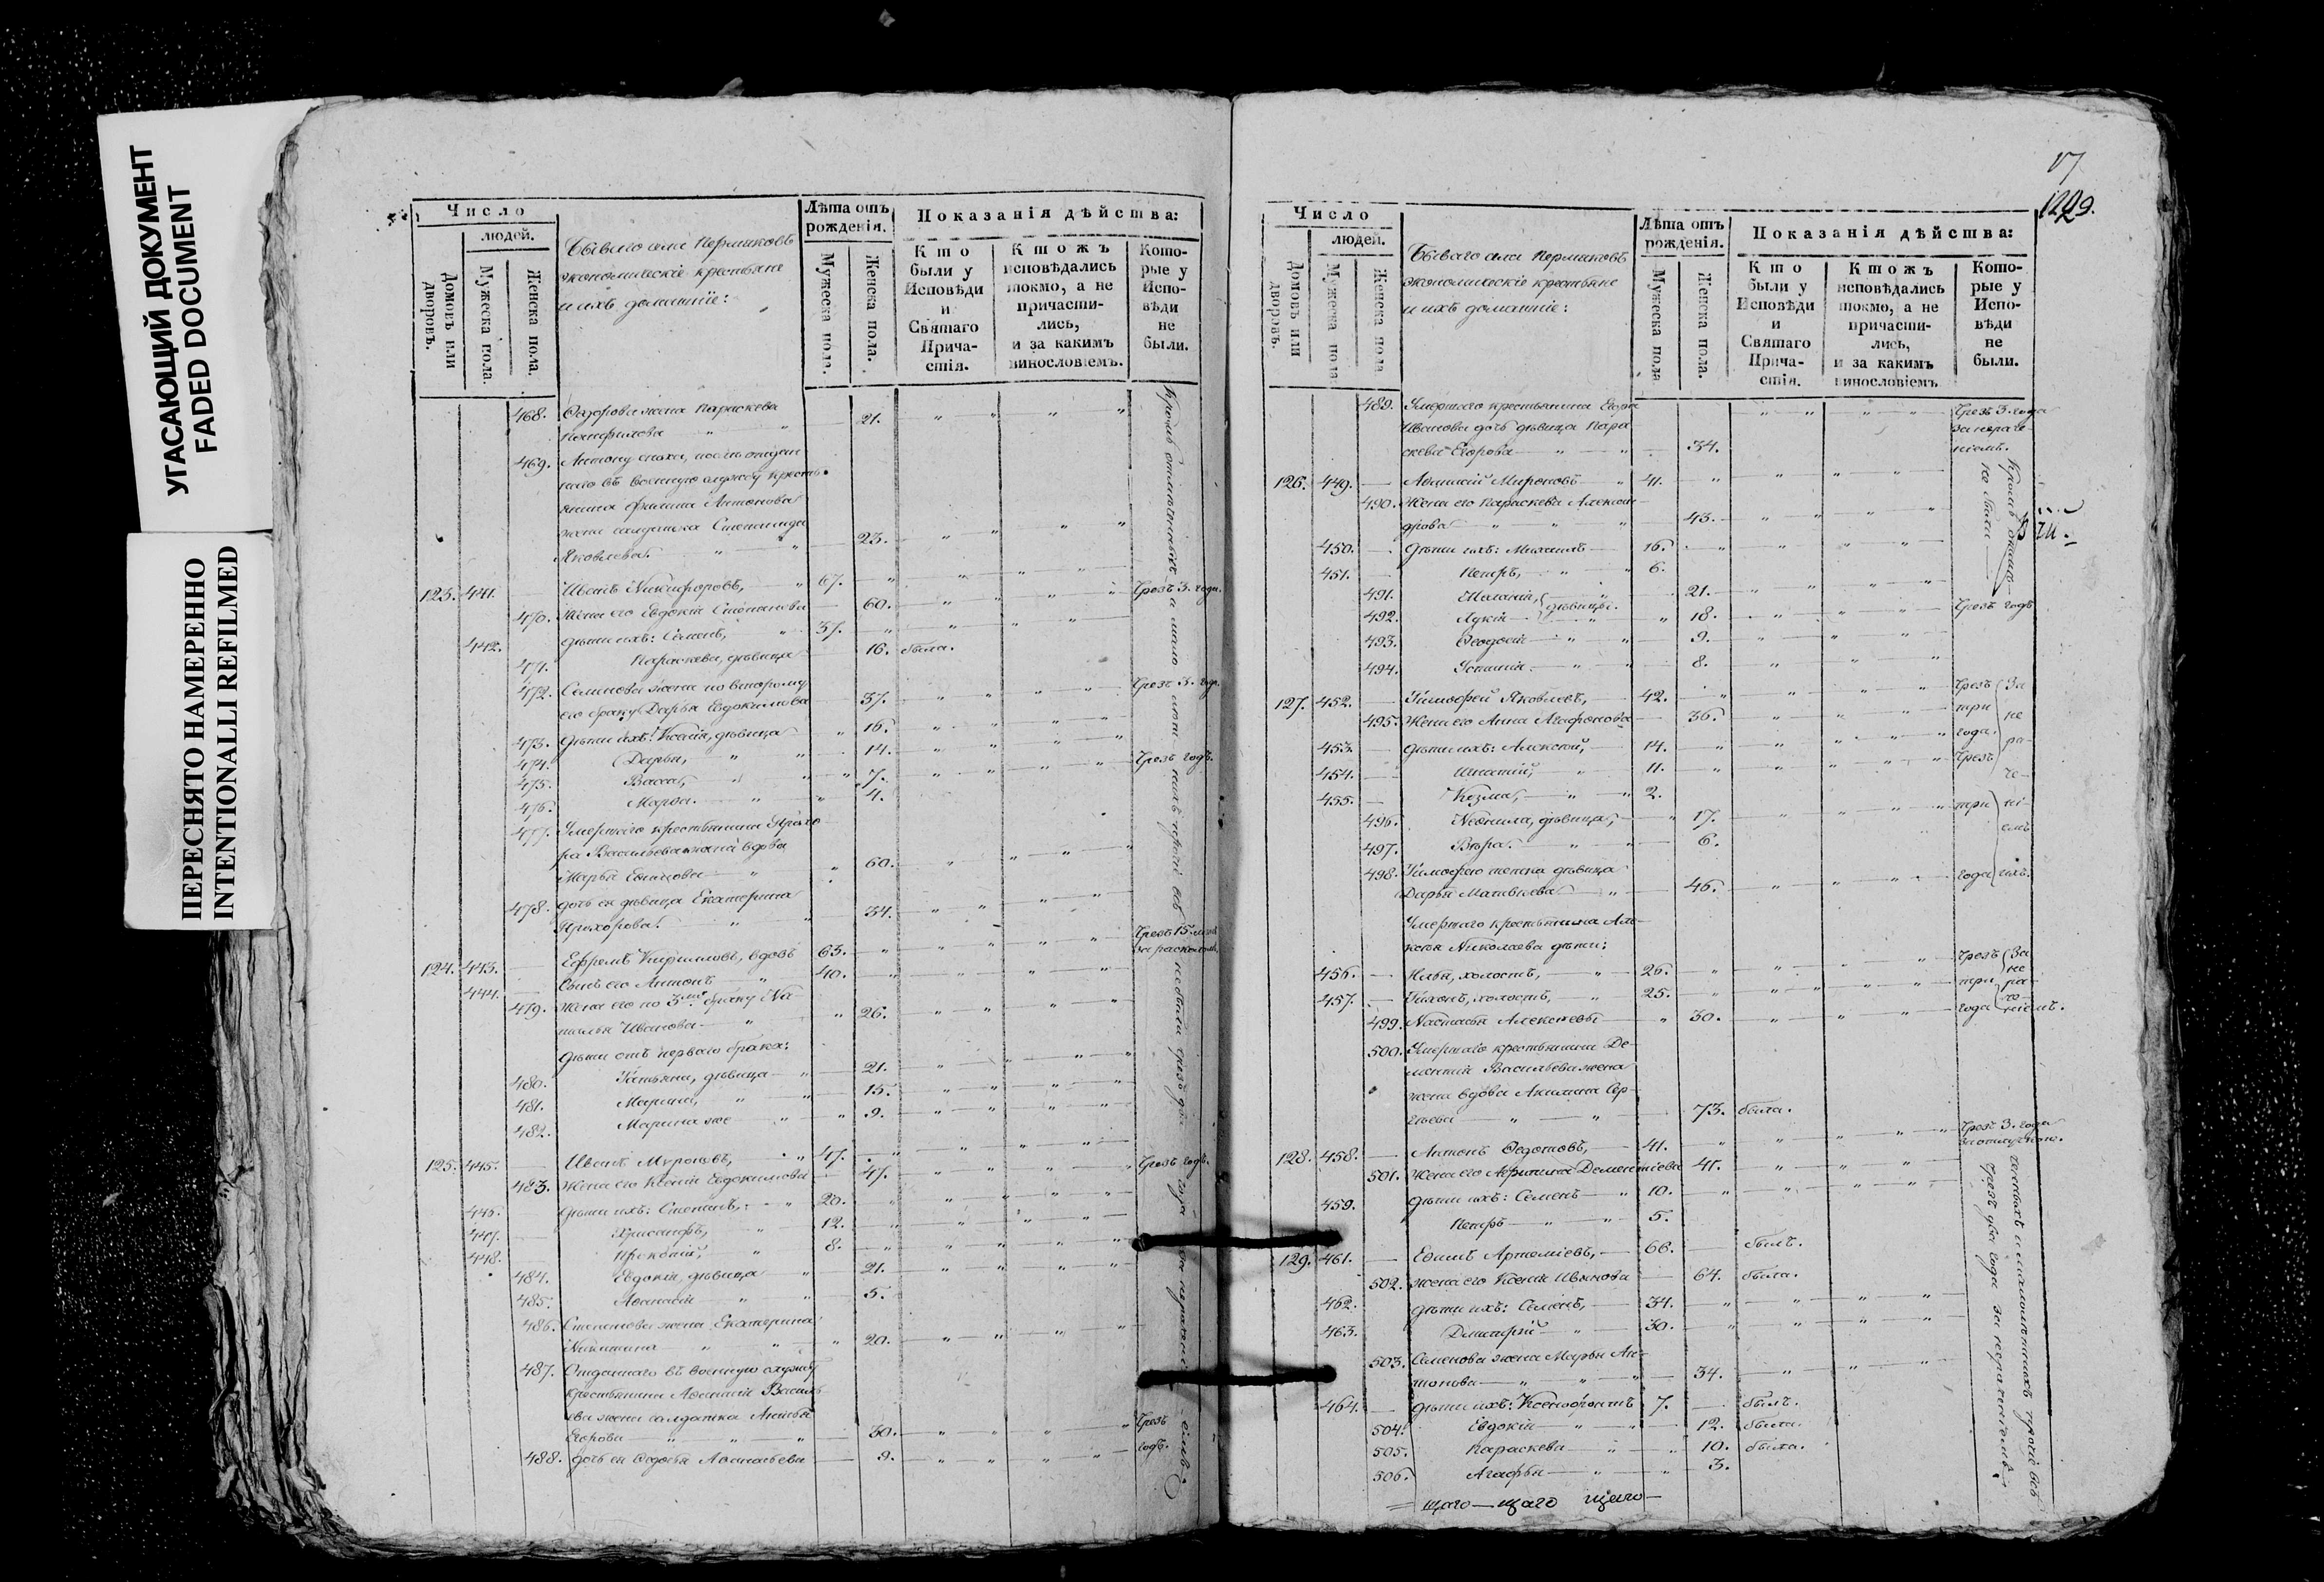 УГАСАЮЩИЙ ДОКУМЕНТ
FADED DOCUMENT
ПЕРЕСНЯТО НАМЕРЕННО
INTENTIONALLI REFILMED
Число
людей.
Домовъ или дворовъ.
Мужеска пола.
Женска пола.
экономическіе крестьяне
и ихъ домашніе:
Лѣта отъ рожденія.
Мужеска пола.
Женска пола.
Показанія дѣйства:
Кто были у Исповѣди и Святаго Причастія.
Ктожъ исповѣдались токмо, а не причастились, и за какимъ винословіемъ.
Которые у Исповѣди не были.
468. жена Параскева
Панфилова 21.
469. Антону сноха,
въ военную службу
Филипа Антонова
жена салдатка Степанида
Яковлева. 23.
123. 441. Иванъ Никифоровъ, 67. Чрезъ 3. года.
470. Жена его Евдокія Степанова 60.
442. дѣти ихъ: Семенъ, 37.
471. Параскева, дѣвица 16. была.
472. Семенова жена по второму
его браку Дарья Евдокимова 37. Чрезъ 3. года.
473. дѣти ихъ: Ксенія, дѣвица 16.
474. Дарья, 14.
475. Васса, 7. Чрезъ годъ.
476. Марѳа. 4.
477. Умершаго крестьянина Прохо
ра Васильева жена вдова
Марья 60.
478. дочь ея дѣвица Екатерина
Прохорова. 34.
124. 443. Ефремъ Кириловъ, вдовъ 63. Чрезъ 15. лѣтъ
за расколомъ
444. Сынъ его Антонъ 40.
479. Жена его по 3му браку На
талья Иванова 26.
дѣти отъ перваго брака:
480. Татьяна, дѣвица 21.
481. Марина, 15.
482. Марина же 9.
125. 445. Иванъ Мироновъ, 47.
483. Жена его Ксенія Евдокимова 47. Чрезъ годъ.
446. дѣти ихъ: Степанъ, 20.
447. Хрисанфъ, 12.
448. Прокопій, 8.
484. Евдокія, дѣвица 21.
485. 5.
486. Степанова жена Екатерина
Никитина 20.
487. Отданнаго въ военную службу
крестьянина Василь
ева жена салдатка
Егорова 30. Чрезъ
488. дочь ея 9. годъ.
17
1229.
Число
людей.
Домовъ или дворовъ.
Мужеска пола
Женска пола
экономическіе крестьяне
и ихъ домашніе:
Лѣта отъ рожденія.
Мужеска пола
Женска пола.
Показанія дѣйства:
Кто были у Исповѣди и Святаго Причастія.
Ктожъ исповѣдались токмо, а не причастились, и за какимъ винословіемъ
Которые у Исповѣди не были.
489. Умершаго крестьянина Егора
Иванова дочь дѣвица Пара
скевія Егорова 34. Чрезъ 3. года
за нераче
ніемъ.
126. 449. Мироновъ 41.
490. Жена его Параскева Алексан
дрова 43.
450. дѣти ихъ: Михаилъ 16.
451. Петръ, 6.
491. Маланія, 21.
492. Лукія дѣвицы. 18. Чрезъ годъ
493. Ѳеодосія 9.
494. Устинія. 8.
127. 452. Тимофей Яковлевъ, 42. Чрезъ
495. Жена его Анна Агафонова 36. три
453. дѣти ихъ: Алексѣй, 14. года.
454. Игнатій, 11. Чрезъ
455. Козма, 2.
496. Неонила, дѣвица, 17. три
497. Вѣра. 6.
498. Тимофею дѣвица
Дарья Матвѣева 46. года
Умершаго крестьянина Але
ксѣя Николаева дѣти:
456. Илья, холостъ, 26. Чрезъ
457. Тихонъ, холостъ, 25. три
499. Настасья Алексѣева 30. года
500. Умершаго крестьянина Де
ментія Васильева жена
жена вдова Акилина Сер
гѣева 73. была.
128. 458. Антонъ Ѳедотовъ, 41. Чрезъ 3. года
501. Жена его Дементіева 41.
459. дѣти ихъ: Семенъ 10.
Петръ 5.
129. 461. Артемьевъ, 66. былъ.
502. жена его Ксенія Иванова 64. была.
462. дѣти ихъ: Семенъ, 34.
463. Дмитрій 30.
503. Семенова жена Марья Ан
тонова 34.
464. дѣти ихъ: Ксенофонтъ 7. былъ.
504. Евдокія 12. была.
505. Параскева 10. была.
506. Агафья 3.